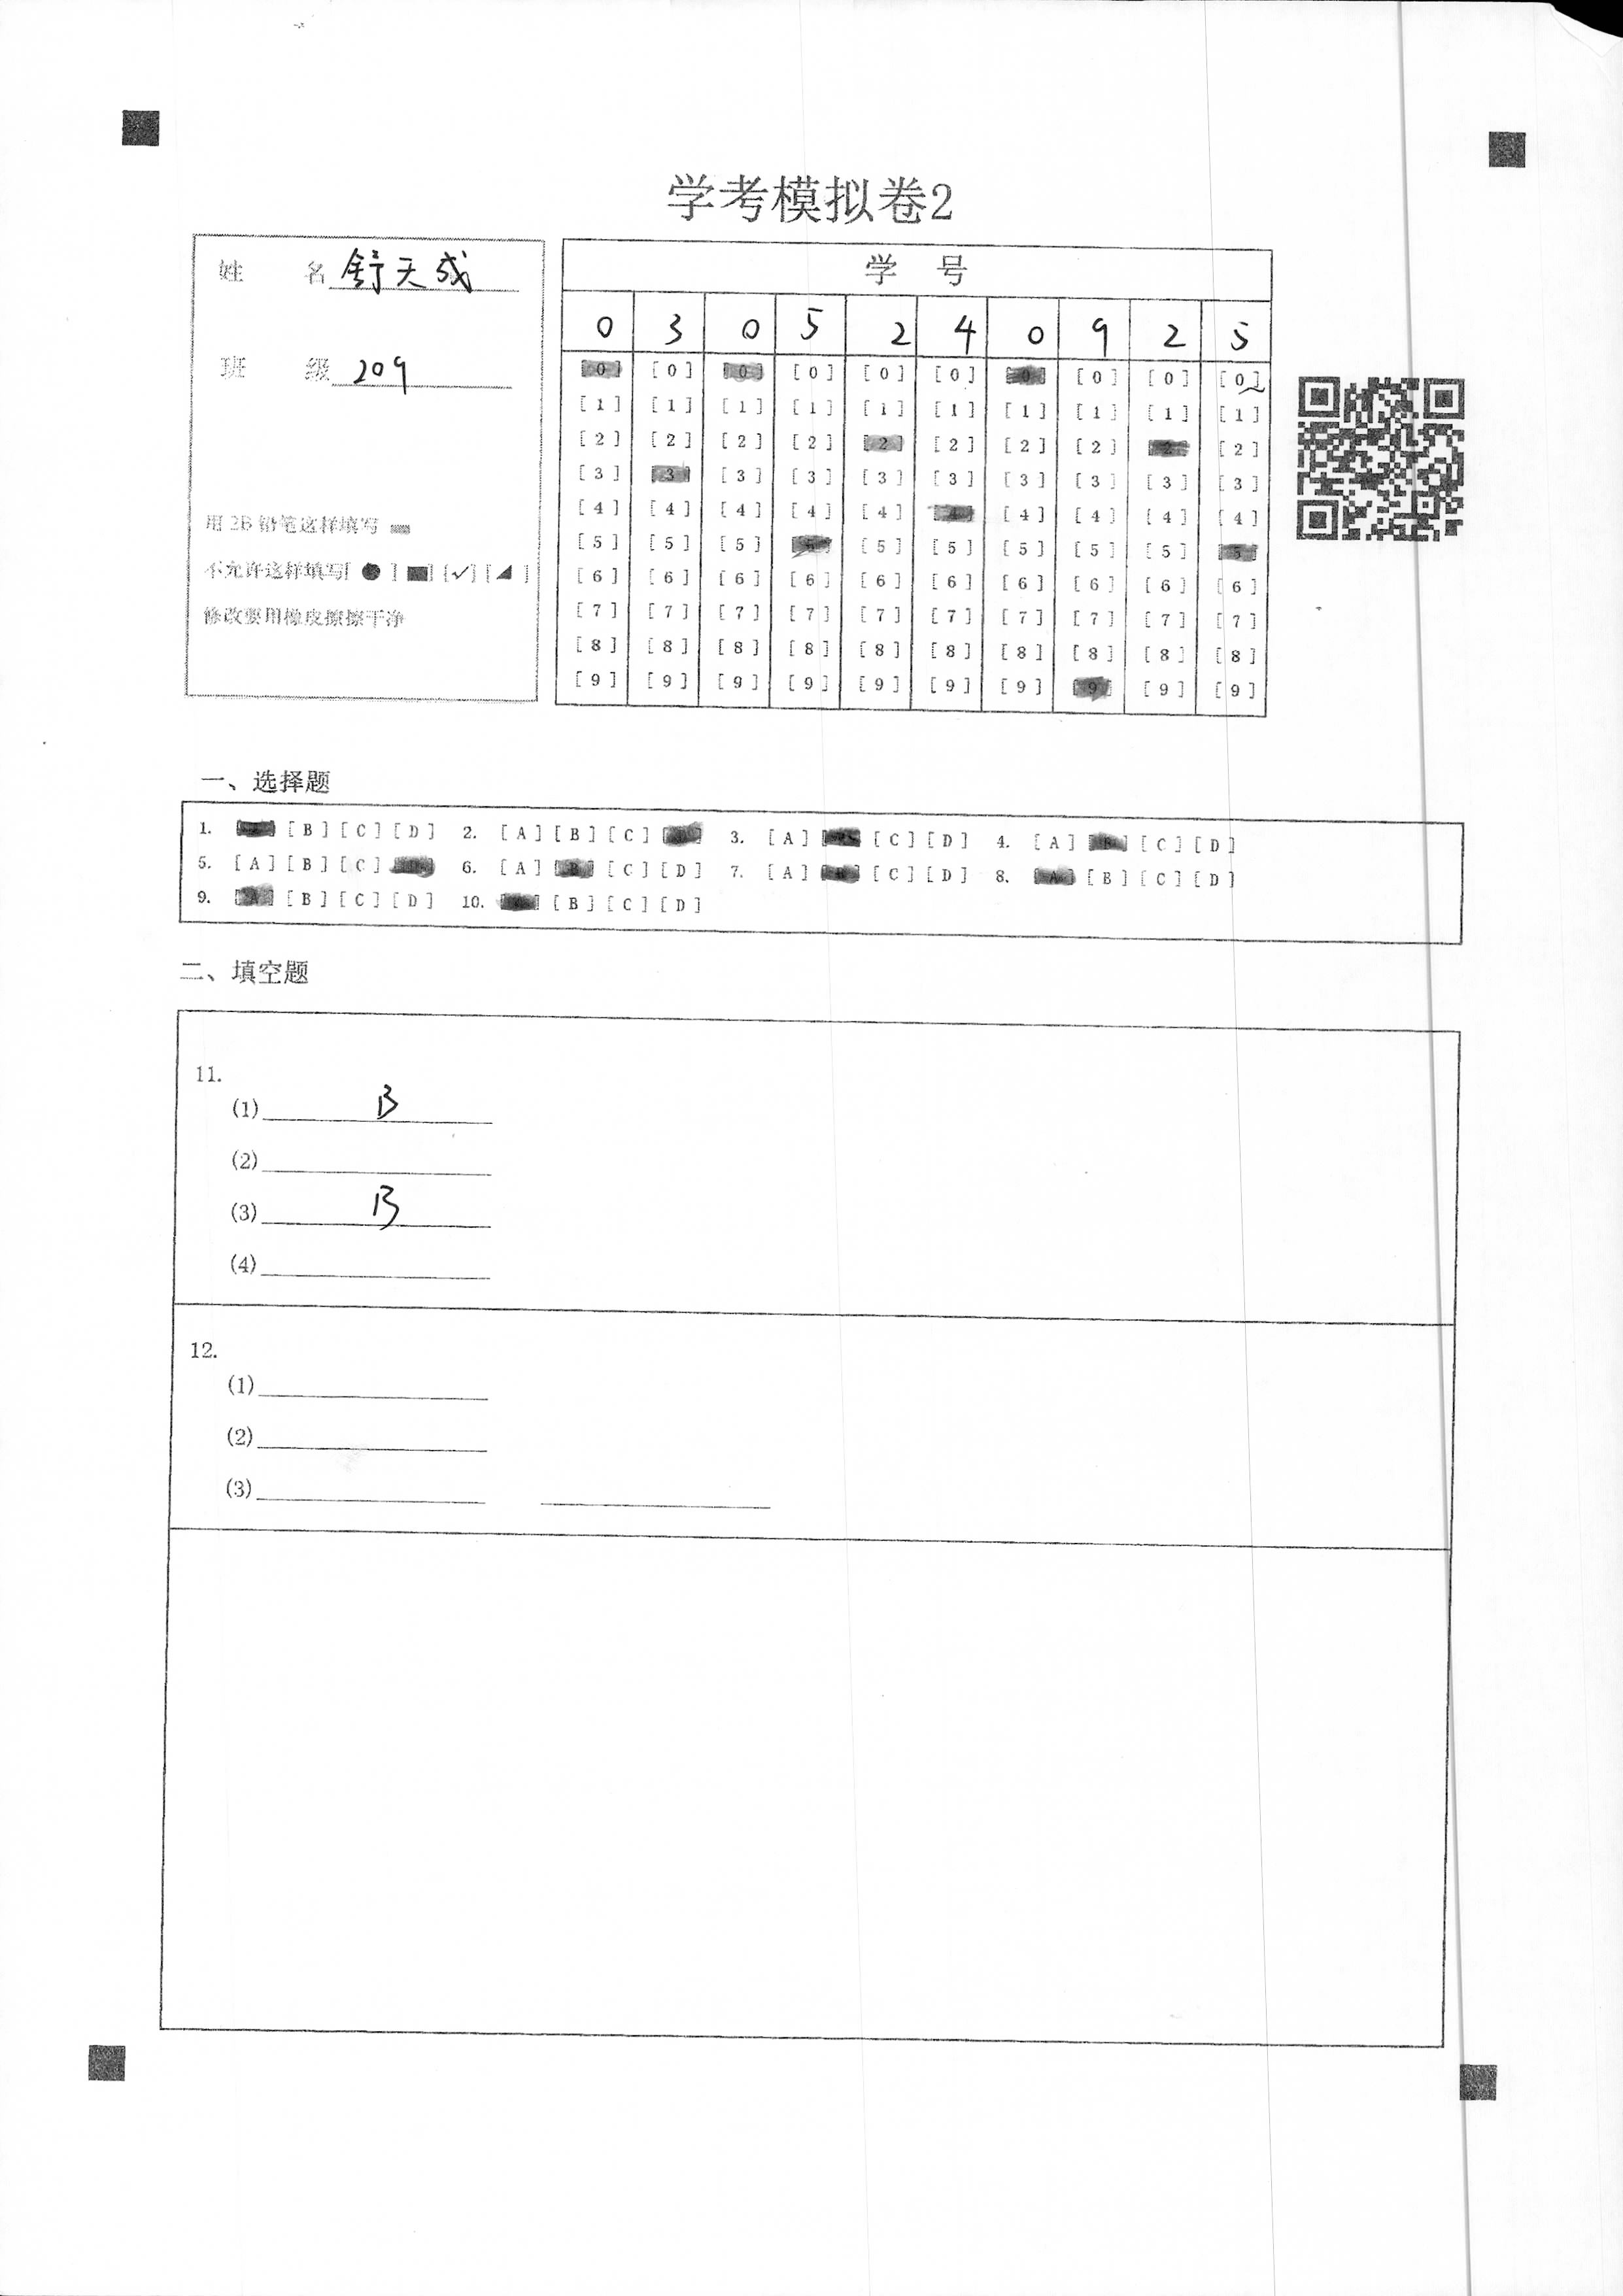 学考模拟卷2
姓 名 舒天成
班 级 209
用 2B 铅笔这样填写
不允许这样填写[●] [■] [✓] [◢]
修改要用橡皮擦擦干净
学 号
0 3 0 5 2 4 0 9 2 5
[0] [0] [0] [0] [0] [0] [0] [0] [0] [0]
[1] [1] [1] [1] [1] [1] [1] [1] [1] [1]
[2] [2] [2] [2] [2] [2] [2] [2] [2] [2]
[3] [3] [3] [3] [3] [3] [3] [3] [3] [3]
[4] [4] [4] [4] [4] [4] [4] [4] [4] [4]
[5] [5] [5] [5] [5] [5] [5] [5] [5] [5]
[6] [6] [6] [6] [6] [6] [6] [6] [6] [6]
[7] [7] [7] [7] [7] [7] [7] [7] [7] [7]
[8] [8] [8] [8] [8] [8] [8] [8] [8] [8]
[9] [9] [9] [9] [9] [9] [9] [9] [9] [9]
一、选择题
1. [A] [B] [C] [D] 2. [A] [B] [C] [D] 3. [A] [B] [C] [D] 4. [A] [B] [C] [D]
5. [A] [B] [C] [D] 6. [A] [B] [C] [D] 7. [A] [B] [C] [D] 8. [A] [B] [C] [D]
9. [A] [B] [C] [D] 10. [A] [B] [C] [D]
二、填空题
11.
(1) B
(2)
(3) B
(4)
12.
(1)
(2)
(3)